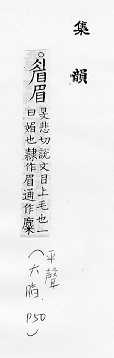 集韻
○睂眉旻悲切說文目上毛也一
曰媚也隸作眉通作麋
平聲
(六脂. P50)